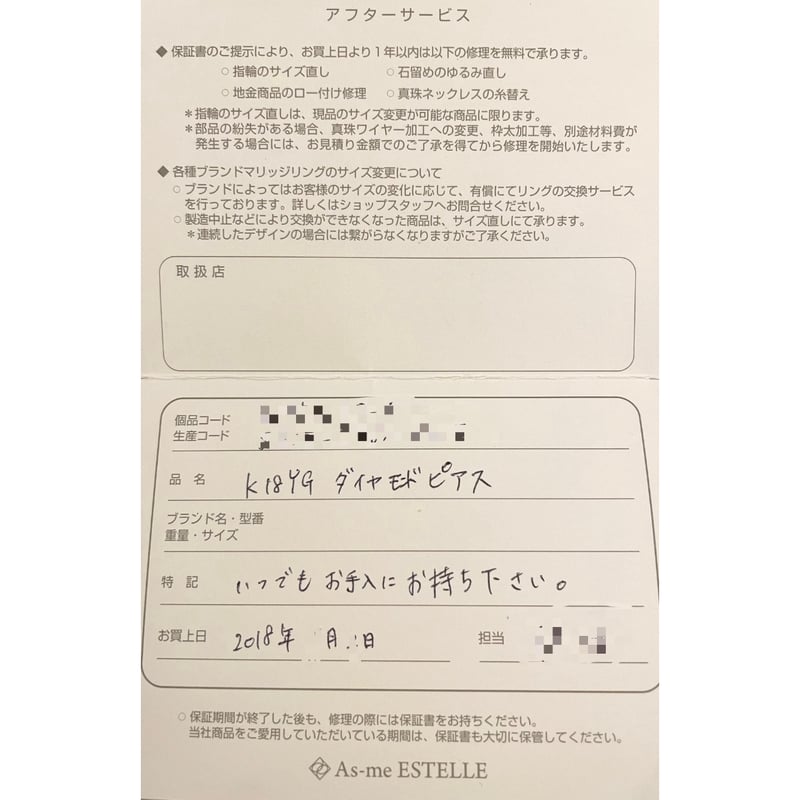 アフターサービス
◆ 保証書のご提示により、お買上日より1年以内は以下の修理を無料で承ります。
○ 指輪のサイズ直し ○ 石留めのゆるみ直し
○ 地金商品のロー付け修理 ○ 真珠ネックレスの糸替え
＊指輪のサイズ直しは、現品のサイズ変更が可能な商品に限ります。
＊部品の紛失がある場合、真珠ワイヤー加工への変更、枠太加工等、別途材料費が
発生する場合には、お見積り金額でのご了承を得てから修理を開始いたします。
◆ 各種ブランドマリッジリングのサイズ変更について
○ ブランドによってはお客様のサイズの変化に応じて、有償にてリングの交換サービス
を行っております。詳しくはショップスタッフへお問合せください。
○ 製造中止などにより交換ができなくなった商品は、サイズ直しにて承ります。
＊連続したデザインの場合には繋がらなくなりますがご了承ください。
取扱店
個品コード
生産コード
品名 K18YG ダイヤモンドピアス
ブランド名・型番
重量・サイズ
特記 いつでもお手入にお持ち下さい。
お買上日 2018年 月 日 担当
○ 保証期間が終了した後も、修理の際には保証書をお持ちください。
当社商品をご愛用していただいている期間は、保証書も大切に保管してください。
As-me ESTELLE